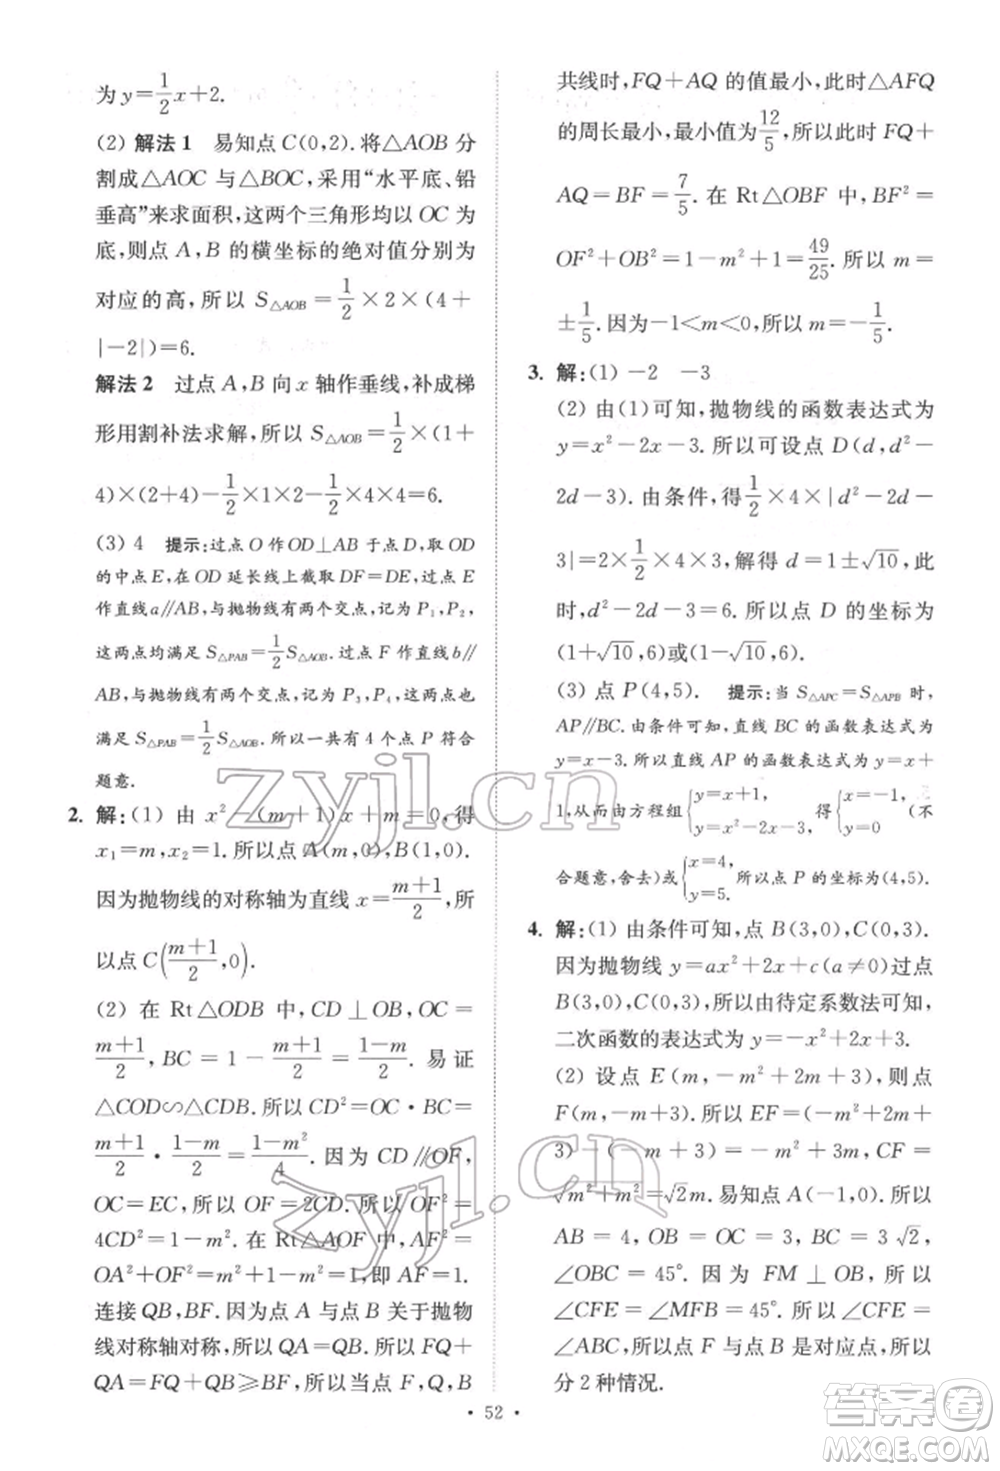 为 y=1/2x+2.
(2) 解法 1 易知点 C(0,2). 将△AOB 分
割成△AOC 与△BOC,采用“水平底、铅
垂高”来求面积,这两个三角形均以 OC 为
底,则点 A,B 的横坐标的绝对值分别为
对应的高,所以 S△AOB=1/2×2×(4+
|-2|)=6.
解法 2 过点 A,B 向 x 轴作垂线,补成梯
形用割补法求解,所以 S△AOB=1/2×(1+
4)×(2+4)-1/2×1×2-1/2×4×4=6.
(3) 4 提示:过点 O 作 OD⊥AB 于点 D,取 OD
的中点 E,在 OD 延长线上截取 DF=DE,过点 E
作直线 a∥AB,与抛物线有两个交点,记为 P₁,P₂,
这两点均满足 S△PAB=1/2S△AOB. 过点 F 作直线 b∥
AB,与抛物线有两个交点,记为 P₃,P₄,这两点也
满足 S△PAB=1/2S△AOB. 所以一共有 4 个点 P 符合
题意.
2. 解:(1) 由 x²-(m+1)x+m=0,得
x₁=m,x₂=1. 所以点 A(m,0),B(1,0).
因为抛物线的对称轴为直线 x=(m+1)/2,所
以点 C((m+1)/2,0).
(2) 在 Rt△ODB 中,CD⊥OB,OC=
(m+1)/2,BC=1-(m+1)/2=(1-m)/2. 易证
△COD∽△CDB. 所以 CD²=OC·BC=
(m+1)/2·(1-m)/2=(1-m²)/4. 因为 CD∥OF,
OC=EC,所以 OF=2CD. 所以 OF²=
4CD²=1-m². 在 Rt△AOF 中,AF²=
OA²+OF²=m²+1-m²=1,即 AF=1.
连接 QB,BF. 因为点 A 与点 B 关于抛物
线对称轴对称,所以 QA=QB. 所以 FQ+
QA=FQ+QB≥BF,所以当点 F,Q,B
共线时,FQ+AQ 的值最小,此时△AFQ
的周长最小,最小值为12/5,所以此时 FQ+
AQ=BF=7/5. 在 Rt△OBF 中,BF²=
OF²+OB²=1-m²+1=49/25. 所以 m=
±1/5. 因为-1<m<0,所以 m=-1/5.
3. 解:(1) -2 -3
(2) 由(1)可知,抛物线的函数表达式为
y=x²-2x-3. 所以可设点 D(d,d²-
2d-3). 由条件,得1/2×4×|d²-2d-
3|=2×1/2×4×3,解得 d=1±√10,此
时,d²-2d-3=6. 所以点 D 的坐标为
(1+√10,6)或(1-√10,6).
(3) 点 P(4,5). 提示:当 S△APC=S△APB 时,
AP∥BC. 由条件可知,直线 BC 的函数表达式为
y=x-3. 所以直线 AP 的函数表达式为 y=x+
1,从而由方程组{y=x+1, y=x²-2x-3, 得{x=-1, y=0 (不
合题意,舍去)或{x=4, y=5. 所以点 P 的坐标为(4,5).
4. 解:(1) 由条件可知,点 B(3,0),C(0,3).
因为抛物线 y=ax²+2x+c(a≠0)过点
B(3,0),C(0,3),所以由待定系数法可知,
二次函数的表达式为 y=-x²+2x+3.
(2) 设点 E(m,-m²+2m+3),则点
F(m,-m+3). 所以 EF=(-m²+2m+
3)-(-m+3)=-m²+3m,CF=
√m²+m²=√2m. 易知点 A(-1,0). 所以
AB=4,OB=OC=3,BC=3√2,
∠OBC=45°. 因为 FM⊥OB,所以
∠CFE=∠MFB=45°. 所以∠CFE=
∠ABC,所以点 F 与点 B 是对应点,所以
分 2 种情况.
·52·
zyjl.cn
zyjl.cn
答案圈
MXQE.COM